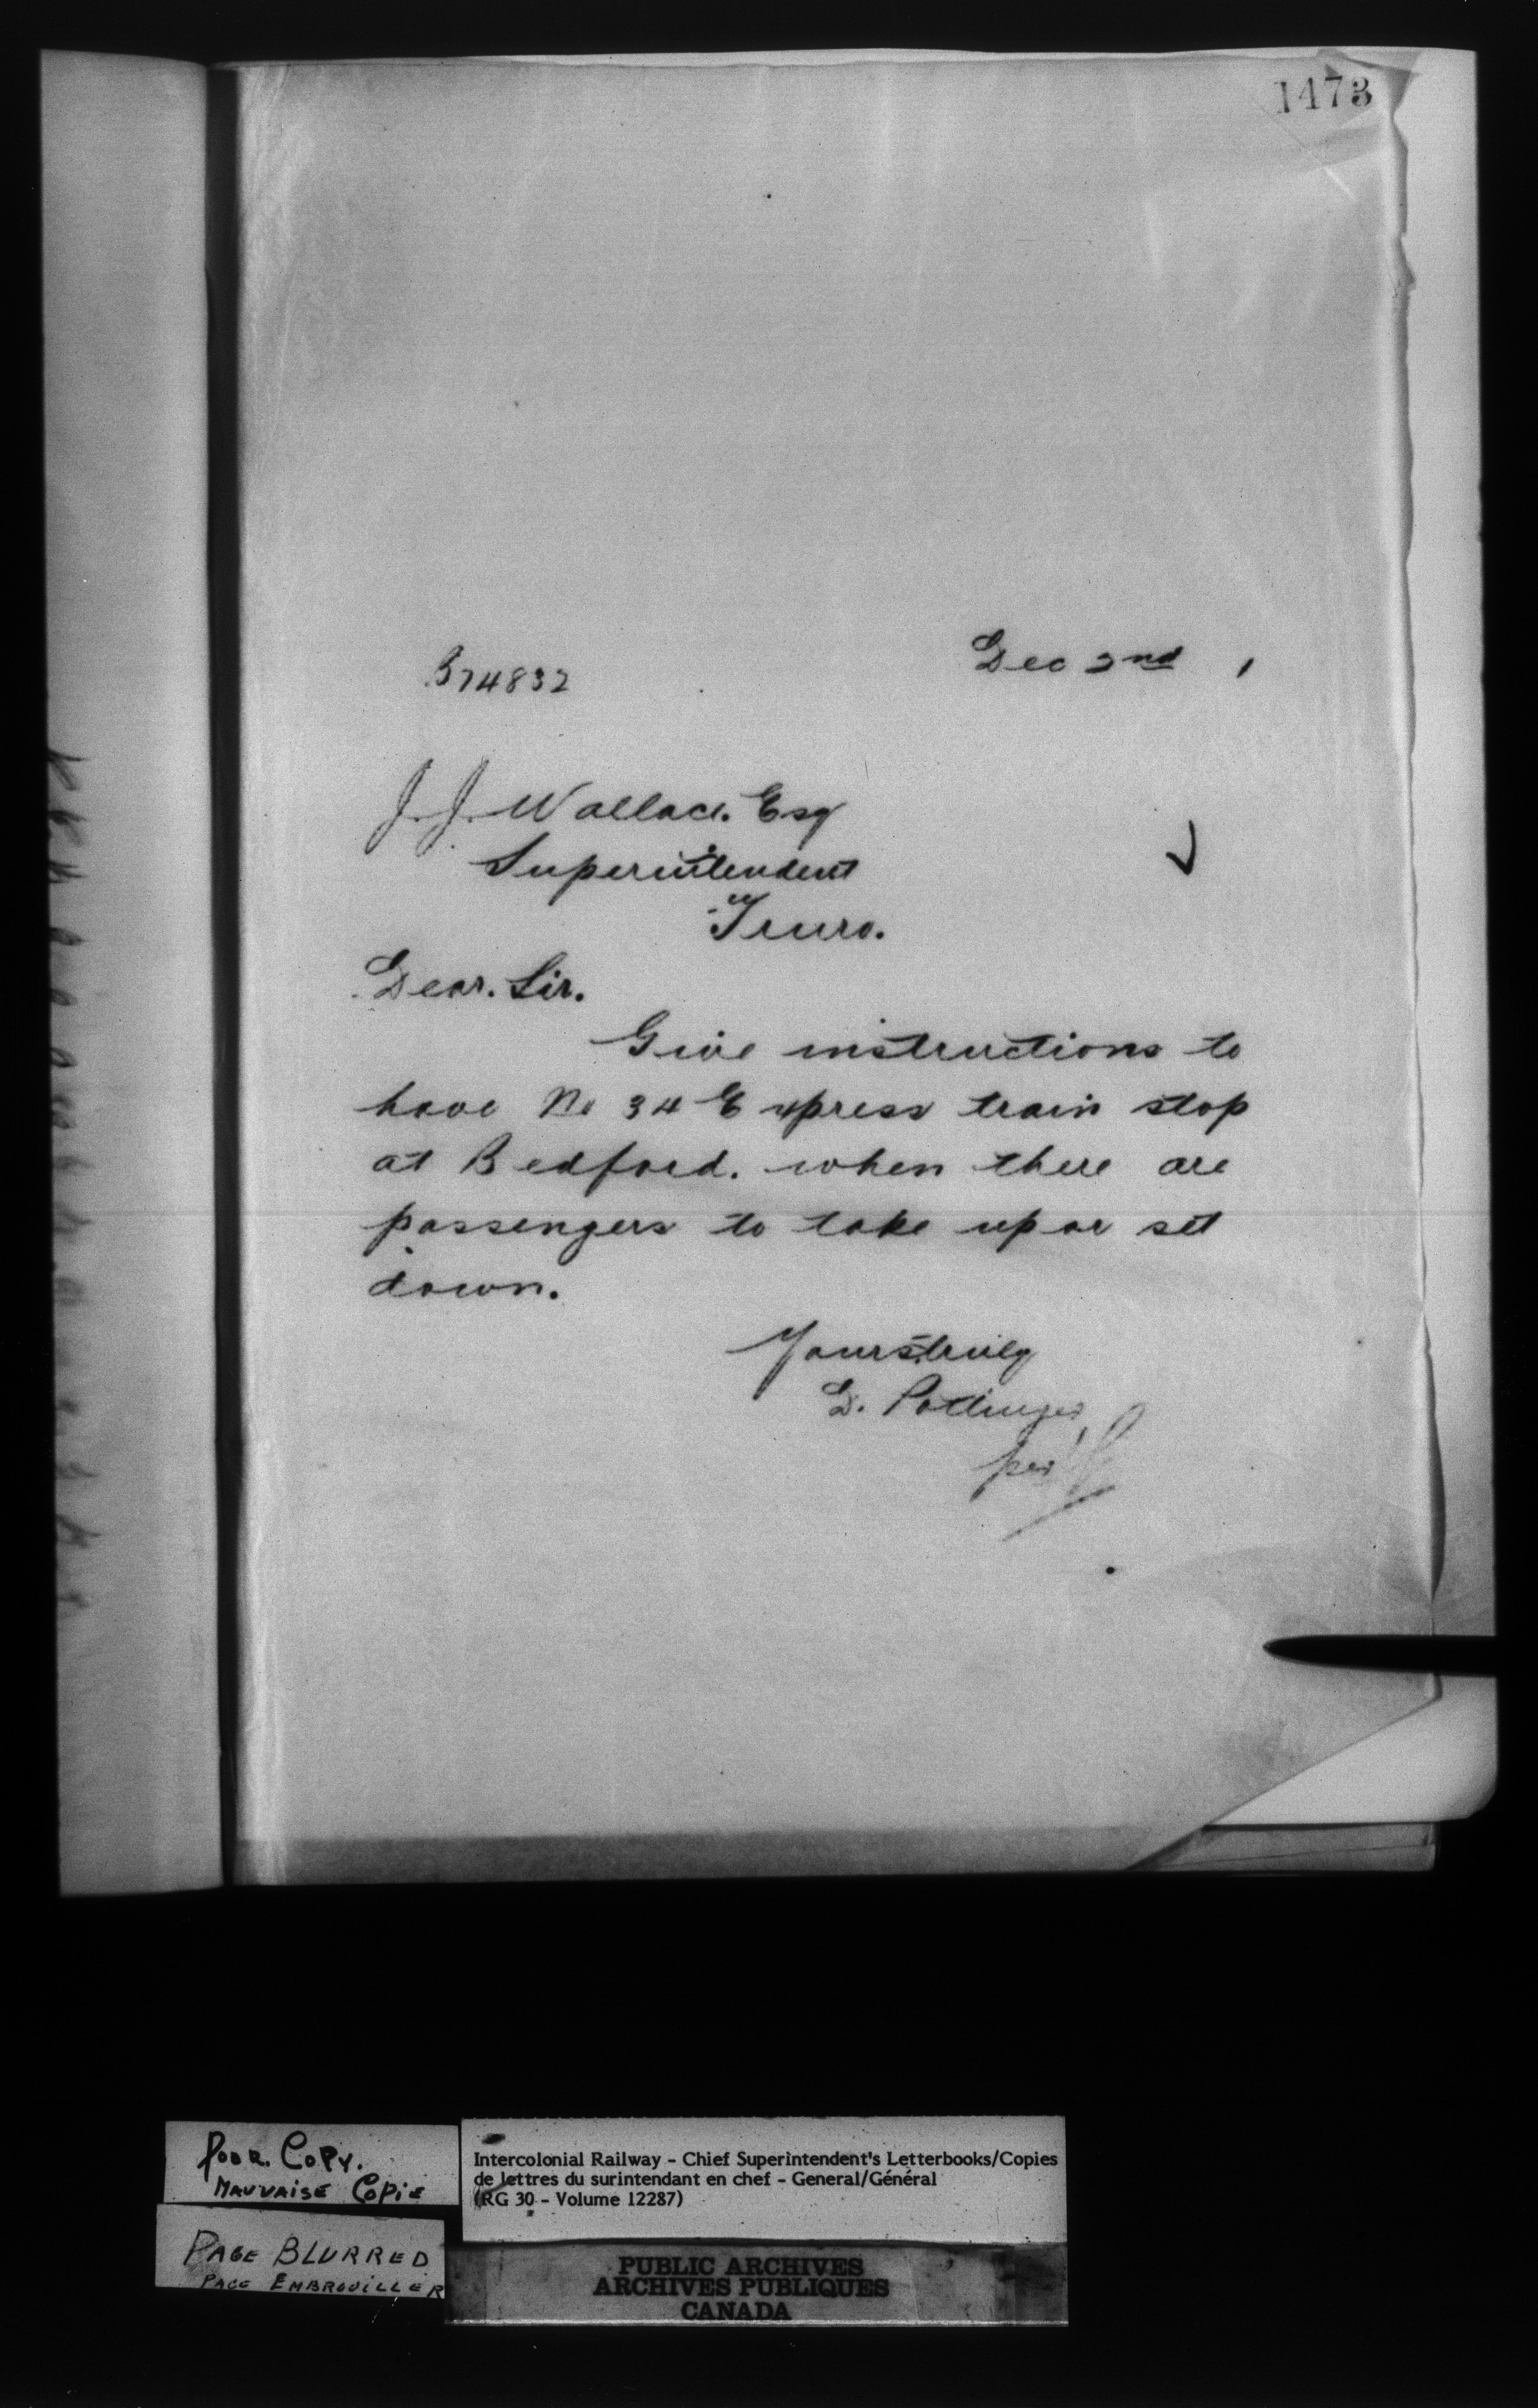 1473
Dec 2nd ,
B74832
J. J. Wallace. Esq
Superintendent
Truro.
Dear. Sir.
Give instructions to
have No 34 Express train stop
at Bedford. when there are
passengers to take up or set
down.
Yours truly
D. Pottinger
per
Poor Copy.
Mauvaise Copie
Intercolonial Railway - Chief Superintendent's Letterbooks/Copies
de lettres du surintendant en chef - General/Général
(RG 30 - Volume 12287)
Page Blurred
Page Embrouiller
PUBLIC ARCHIVES
ARCHIVES PUBLIQUES
CANADA